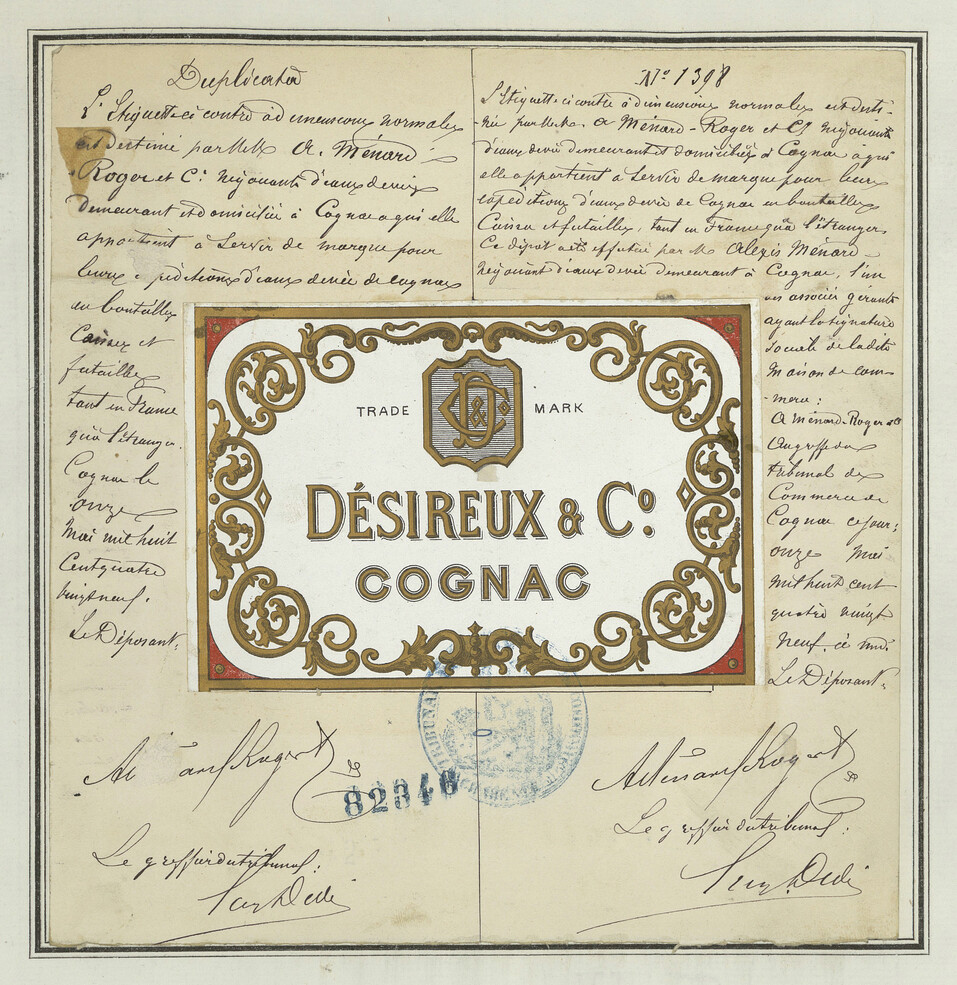 Duplicata
L'Etiquette ci contre à dimensions normales
est destinée par MM A. Ménard-
Roger et Cie Négociants d'eaux devie
demeurant et domiciliés à Cognac a qui elle
appartient à servir de marque pour
leurs expéditions d'eaux devie de Cognac
en bouteilles
Caisses et
futailles
tant en France
qu'à l'étranger.
Cognac le
onze
Mai mil huit
Cent quatre
vingt neuf.
Le Déposant.
A Ménard Roger et
Le greffier du tribunal:
No 1398
L'Etiquette ci contre à dimensions normales est desti-
née par MM. A Ménard-Roger et Cie Négociants
d'eaux devie demeurant et domiciliés à Cognac à qui
elle appartient a servir de marque pour leurs
expéditions d'eaux devie de Cognac en bouteilles
Caisses et futailles, tant en France qu'à l'étranger
Ce dépôt a été effectué par M. Alexis Ménard-
Négociant d'eaux devie demeurant à Cognac, l'un
des associés gérants
ayant la signature
sociale de ladite
Maison de Com-
merce:
A Ménard-Roger et Cie
Au greffe du
tribunal de
Commerce de
Cognac ce jour:
onze Mai
mil huit cent
quatre vingt
neuf. à midi.
Le Déposant.
A Ménard Roger et
Le greffier du tribunal:
TRADE MARK
D & Co
DÉSIREUX & Co.
COGNAC
TRIBUNAL
82346